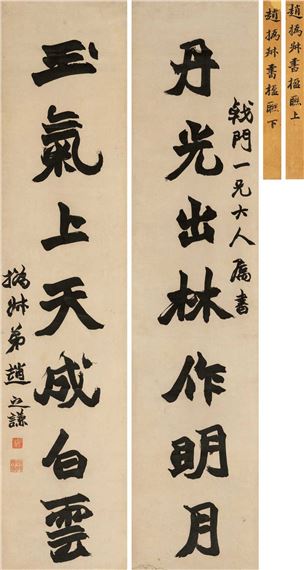 趙撝叔書楹聯上
趙撝叔書楹聯下
戟門一兄大人屬書
丹光出林作明月
玉氣上天成白雲
撝叔弟趙之謙